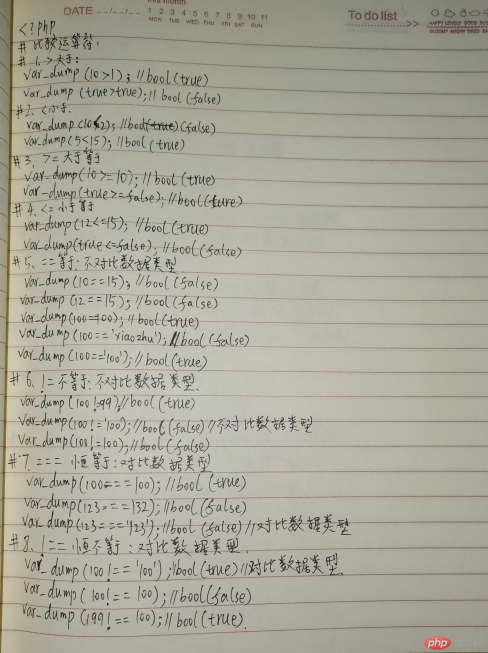 DATE --/--/--
1 2 3 4 5 6 7 8 9 10 11
MON TUE WED THU FRI SAT SUN
To do list
HAPPY LOVELY GOOD
GLOOMY ANGRY TIRED
<?php
# 比较运算符:
# 1. > 大于:
var_dump (10>1); //bool(true)
var_dump (true>true); // bool (false)
#2. <小于.
var_dump (10<2); //bool(true)(false)
var_dump (5<15); //bool(true)
#3. >= 大于等于
var_dump (10>=10); //bool(true)
var-dump(true>=false); //bool(ture)
#4. <= 小于等于
var_dump (12<=15); //bool(true)
var_dump(true<=false); //bool(false)
#5. ==等于: 不对比数据类型
var_dump (10==15); //bool(false)
var_dump (12==15); //bool(false)
var_dump (100==100); //bool(true)
var_dump (100=='xiaozhu'); //bool(false)
var_dump (100=='100'); // bool(true)
#6. != 不等于: 不对比数据类型.
var_dump (100!=99) //bool(true)
var_dump(100!='100'); //bool(false)//不对比数据类型
var_dump (100!=100); //bool(false)
#7. === 恒等于: 对比数据类型
var_dump(100===100); //bool(true)
var_dump (123===132); //bool(false)
var_dump (123==='123'); //bool(false)//对比数据类型
#8. !== 恒不等于: 对比数据类型.
var_dump (100!=='100'); //bool(true)//对比数据类型.
var_dump (100!==100); //bool(false)
var_dump (199!==100); //bool(true).
php